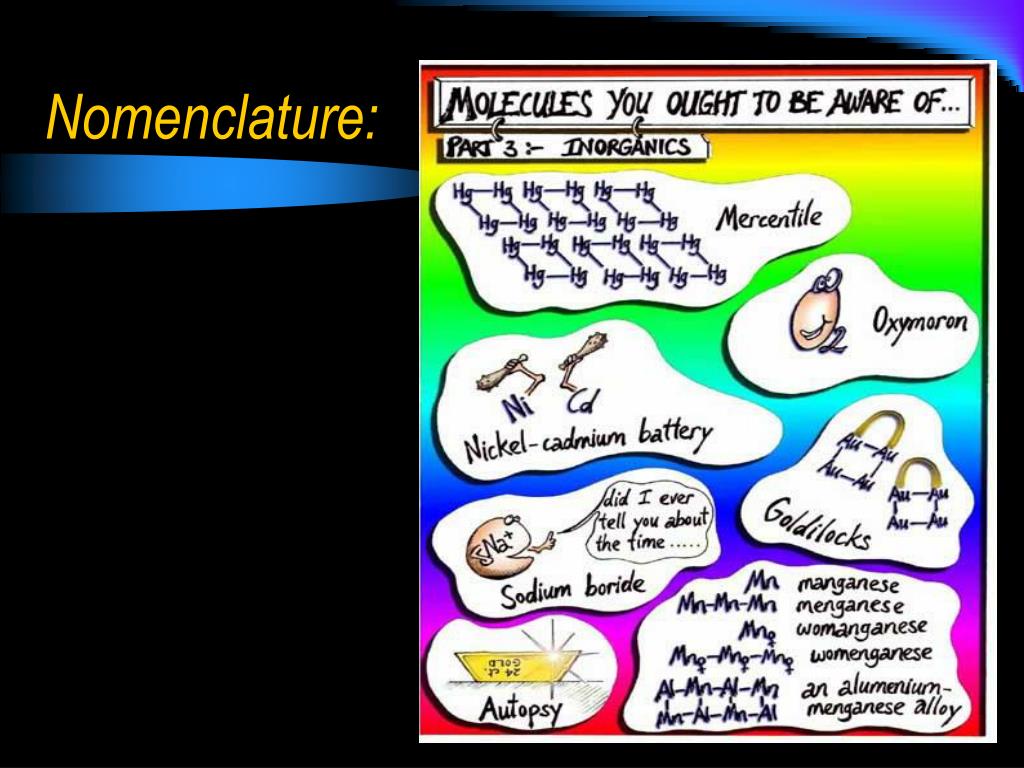 Nomenclature:
MOLECULES YOU OUGHT TO BE AWARE OF...
PART 3:- INORGANICS
Hg-Hg Hg-Hg Hg-Hg
Hg-Hg Hg-Hg Hg-Hg
Hg-Hg Hg-Hg Hg-Hg
Hg-Hg Hg-Hg Hg-Hg
Mercentile
O2
Oxymoron
Ni Cd
Nickel-cadmium battery
Au-Au
Au-Au
Au-Au
Au-Au
Goldilocks
did I ever
tell you about
the time .....
5Na+
Sodium boride
24 ct.
GOLD
Autopsy
Mn manganese
Mn-Mn-Mn menganese
Mn♀ womanganese
Mn♀-Mn♀-Mn♀ womenganese
Al-Mn-Al-Mn an alumenium-
Mn-Al-Mn-Al menganese alloy